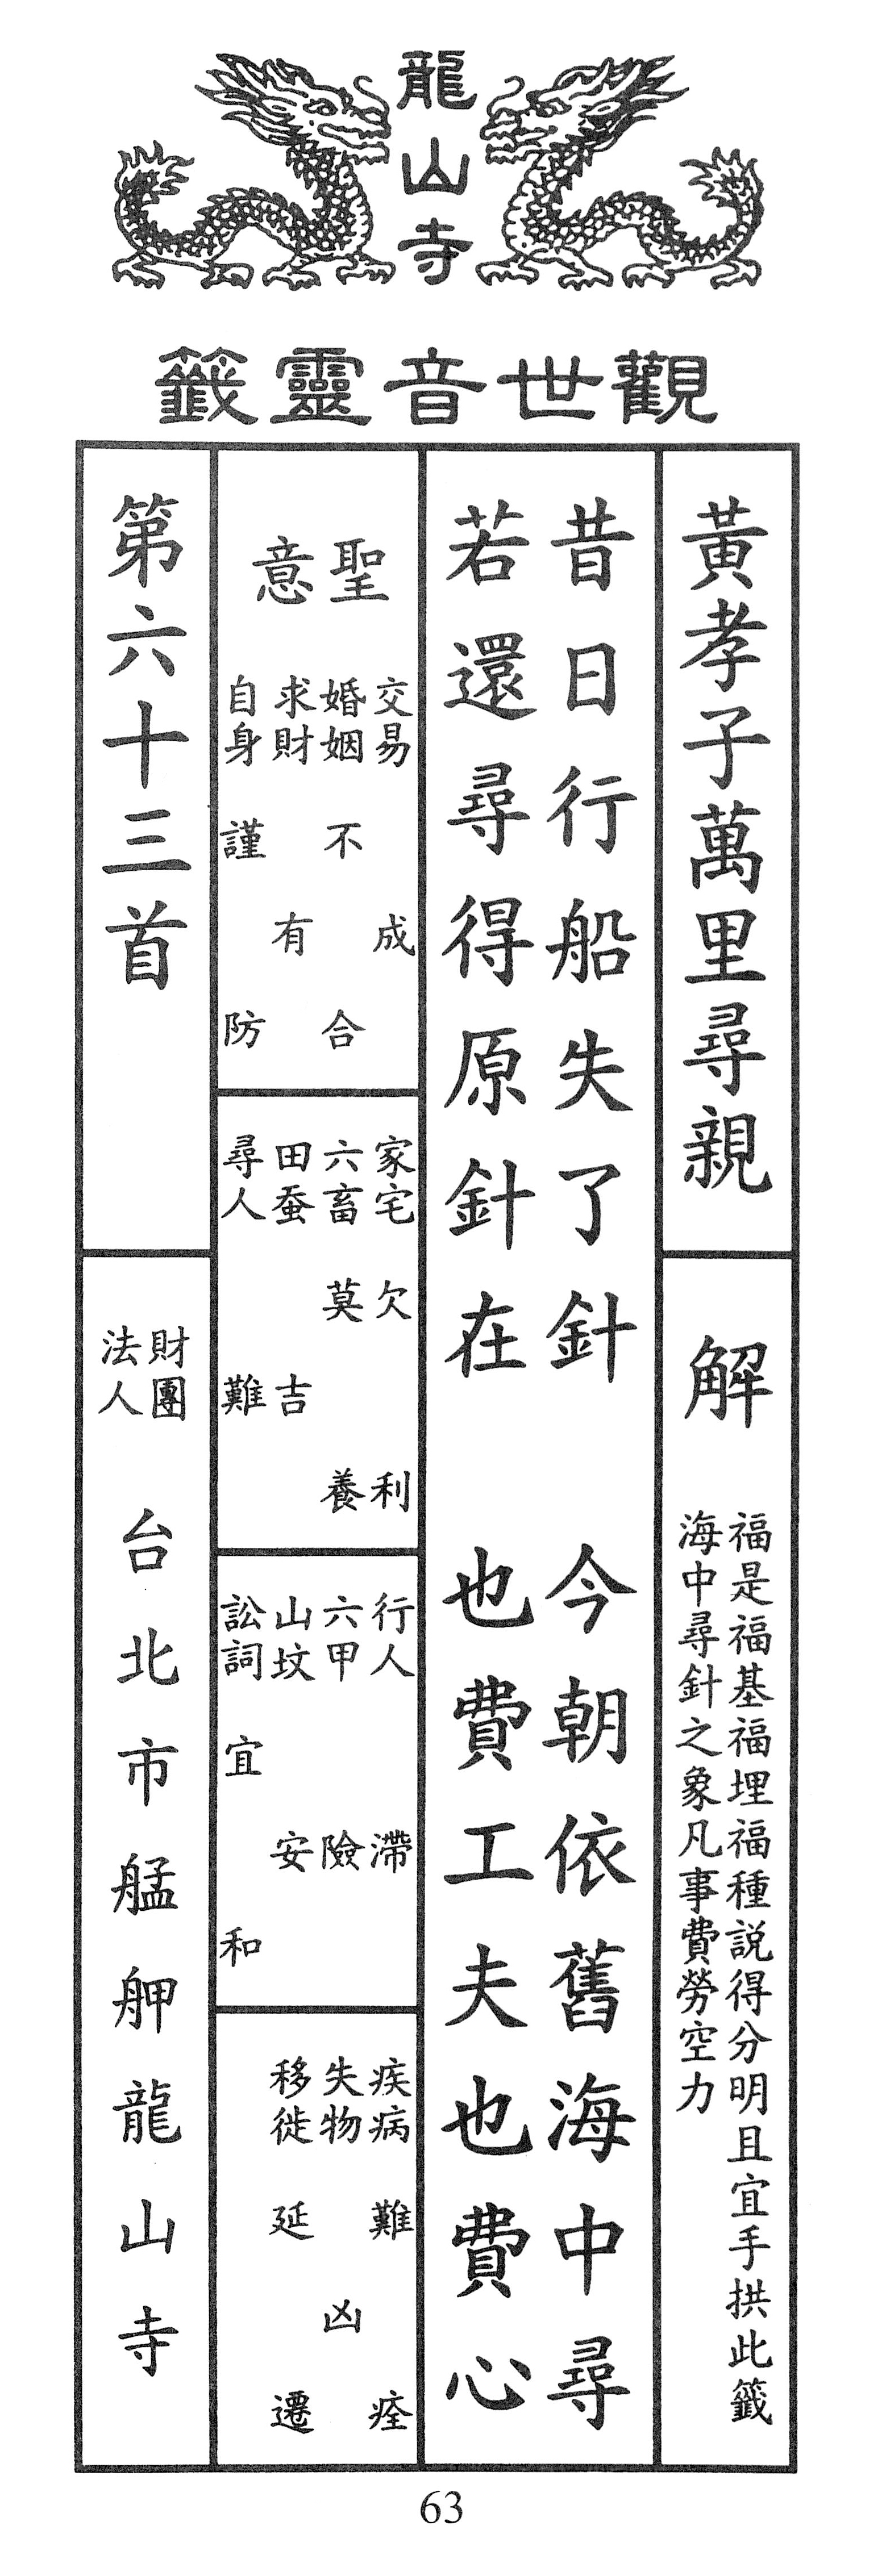 龍山寺
觀世音靈籤
黃孝子萬里尋親
解
福是福基福埋福種説得分明且宜手拱此籤
海中尋針之象凡事費勞空力
昔日行船失了針　今朝依舊海中尋
若還尋得原針在　也費工夫也費心
聖意
交易　成
婚姻　不合
求財　有
自身　謹防
家宅　欠利
六畜　莫養
田蚕　吉
尋人　難
行人　滯
六甲　險
山坟　安
訟詞　宜和
疾病　難痊
失物　凶
移徙　延遷
第六十三首
財團法人　台北市艋舺龍山寺
63